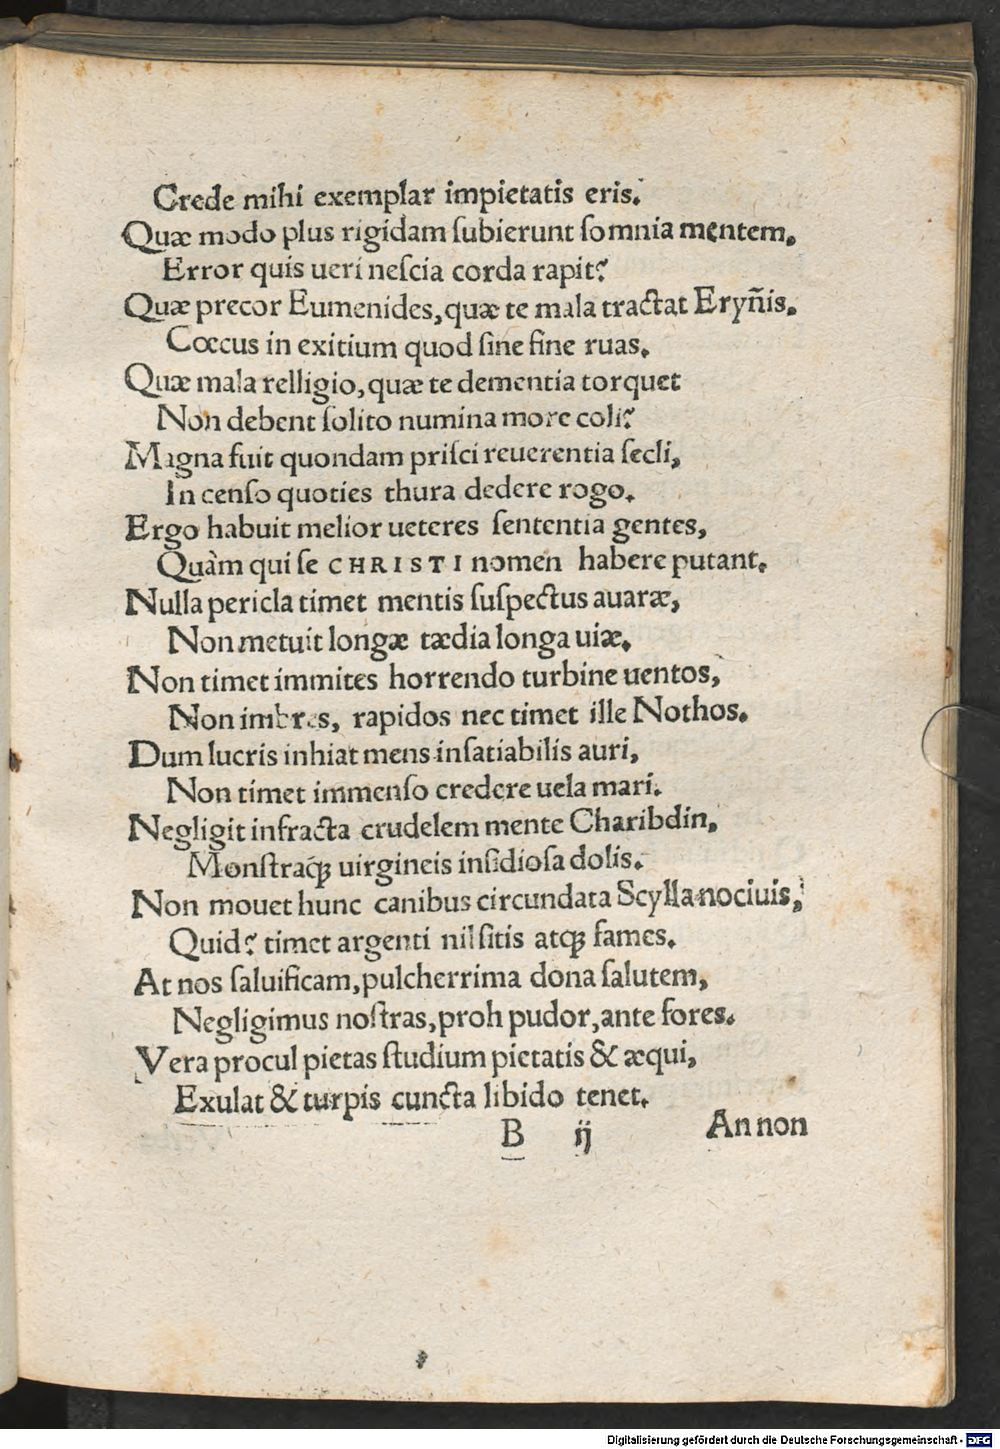 Crede mihi exemplar impietatis eris.
Quæ modo plus rigidam ſubierunt ſomnia mentem.
Error quis ueri neſcia corda rapit?
Quæ precor Eumenides, quæ te mala tractat Eryñis.
Cœcus in exitium quod ſine fine ruas.
Quæ mala relligio, quæ te dementia torquet
Non debent ſolito numina more coli?
Magna fuit quondam priſci reuerentia ſecli,
In cenſo quoties thura dedere rogo.
Ergo habuit melior ueteres ſententia gentes,
Quàm qui ſe CHRISTI nomen habere putant.
Nulla pericla timet mentis ſuſpectus auaræ,
Non metuit longæ tædia longa uiæ.
Non timet immites horrendo turbine uentos,
Non imbres, rapidos nec timet ille Nothos.
Dum lucris inhiat mens inſatiabilis auri,
Non timet immenſo credere uela mari.
Negligit infracta crudelem mente Charibdin,
Monſtraqꝫ uirgineis inſidioſa dolis.
Non mouet hunc canibus circundata Scylla nociuis,
Quid? timet argenti nil ſitis atqꝫ fames.
At nos ſaluificam, pulcherrima dona ſalutem,
Negligimus noſtras, proh pudor, ante fores.
Vera procul pietas ſtudium pietatis & æqui,
Exulat & turpis cuncta libido tenet.
B ij An non
Digitalisierung gefördert durch die Deutsche Forschungsgemeinschaft - DFG